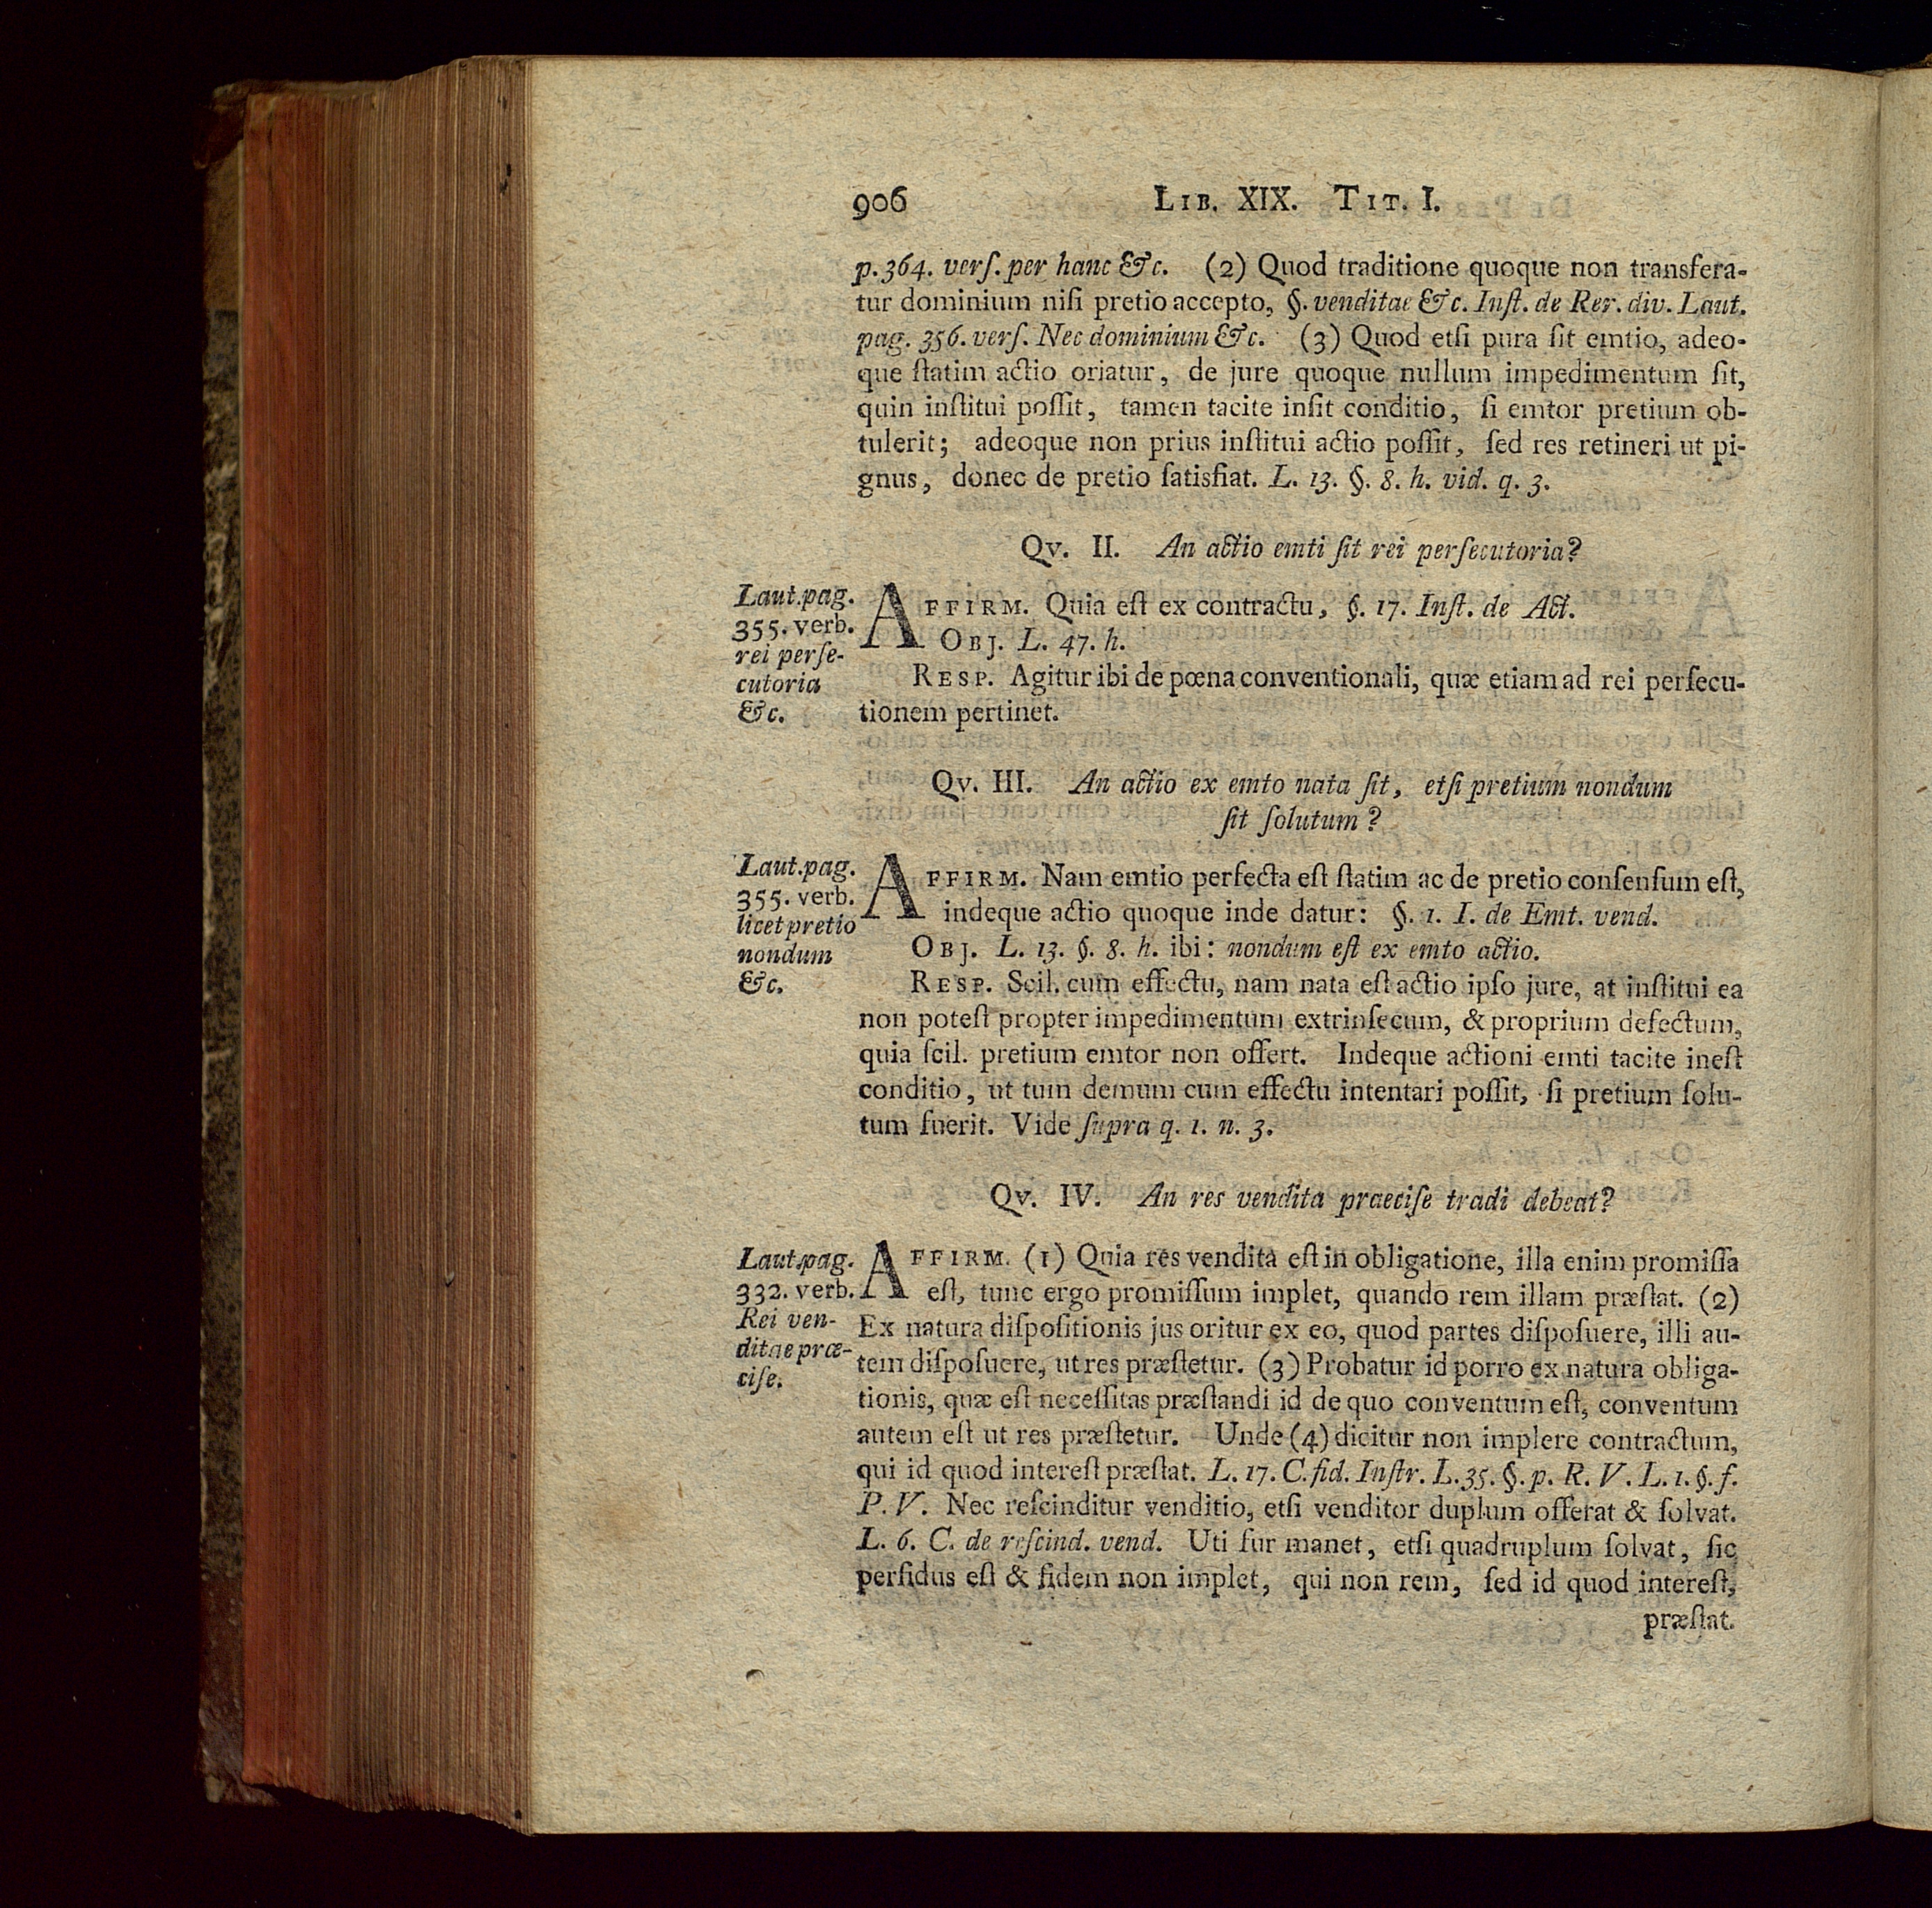 906 LIB. XIX. TIT. I.
p. 364. verſ. per hanc &c. (2) Quod traditione quoque non transfera-
tur dominium niſi pretio accepto, §. venditae &c. Inſt. de Rer. div. Laut.
pag. 356. verſ. Nec dominium &c. (3) Quod etſi pura ſit emtio, adeo-
que ſtatim actio oriatur, de jure quoque nullum impedimentum ſit,
quin inſtitui poſſit, tamen tacite inſit conditio, ſi emtor pretium ob-
tulerit; adeoque non prius inſtitui actio poſſit, ſed res retineri ut pi-
gnus, donec de pretio ſatisfiat. L. 13. §. 8. h. vid. q. 3.
Qv. II. An actio emti ſit rei perſecutoria?
Laut. pag.
355. verb.
rei perſe-
cutoria
&c.
AFFIRM. Quia eſt ex contractu, §. 17. Inſt. de Act.
OBJ. L. 47. h.
RESP. Agitur ibi de pœna conventionali, quæ etiam ad rei perſecu-
tionem pertinet.
Qv. III. An actio ex emto nata ſit, etſi pretium nondum
ſit ſolutum?
Laut. pag.
355. verb.
licet pretio
nondum
&c.
AFFIRM. Nam emtio perfecta eſt ſtatim ac de pretio conſenſum eſt,
indeque actio quoque inde datur: §. 1. I. de Emt. vend.
OBJ. L. 13. §. 8. h. ibi: nondum eſt ex emto actio.
RESP. Scil. cum effectu, nam nata eſt actio ipſo jure, at inſtitui ea
non poteſt propter impedimentum extrinſecum, & proprium defectum,
quia ſcil. pretium emtor non offert. Indeque actioni emti tacite ineſt
conditio, ut tum demum cum effectu intentari poſſit, ſi pretium ſolu-
tum fuerit. Vide ſupra q. 1. n. 3.
Qv. IV. An res vendita praeciſe tradi debeat?
Laut. pag.
332. verb.
Rei ven-
ditae præ-
ciſe.
AFFIRM. (1) Quia res vendita eſt in obligatione, illa enim promiſſa
eſt, tunc ergo promiſſum implet, quando rem illam præſtat. (2)
Ex natura diſpoſitionis jus oritur ex eo, quod partes diſpoſuere, illi au-
tem diſpoſuere, ut res præſtetur. (3) Probatur id porro ex natura obliga-
tionis, quæ eſt neceſſitas præſtandi id de quo conventum eſt, conventum
autem eſt ut res præſtetur. Unde (4) dicitur non implere contractum,
qui id quod intereſt præſtat. L. 17. C. fid. Inſtr. L. 35. §. p. R. V. L. 1. §. f.
P. V. Nec reſcinditur venditio, etſi venditor duplum offerat & ſolvat.
L. 6. C. de reſcind. vend. Uti fur manet, etſi quadruplum ſolvat, ſic
perfidus eſt & fidem non implet, qui non rem, ſed id quod intereſt,
præſtat.